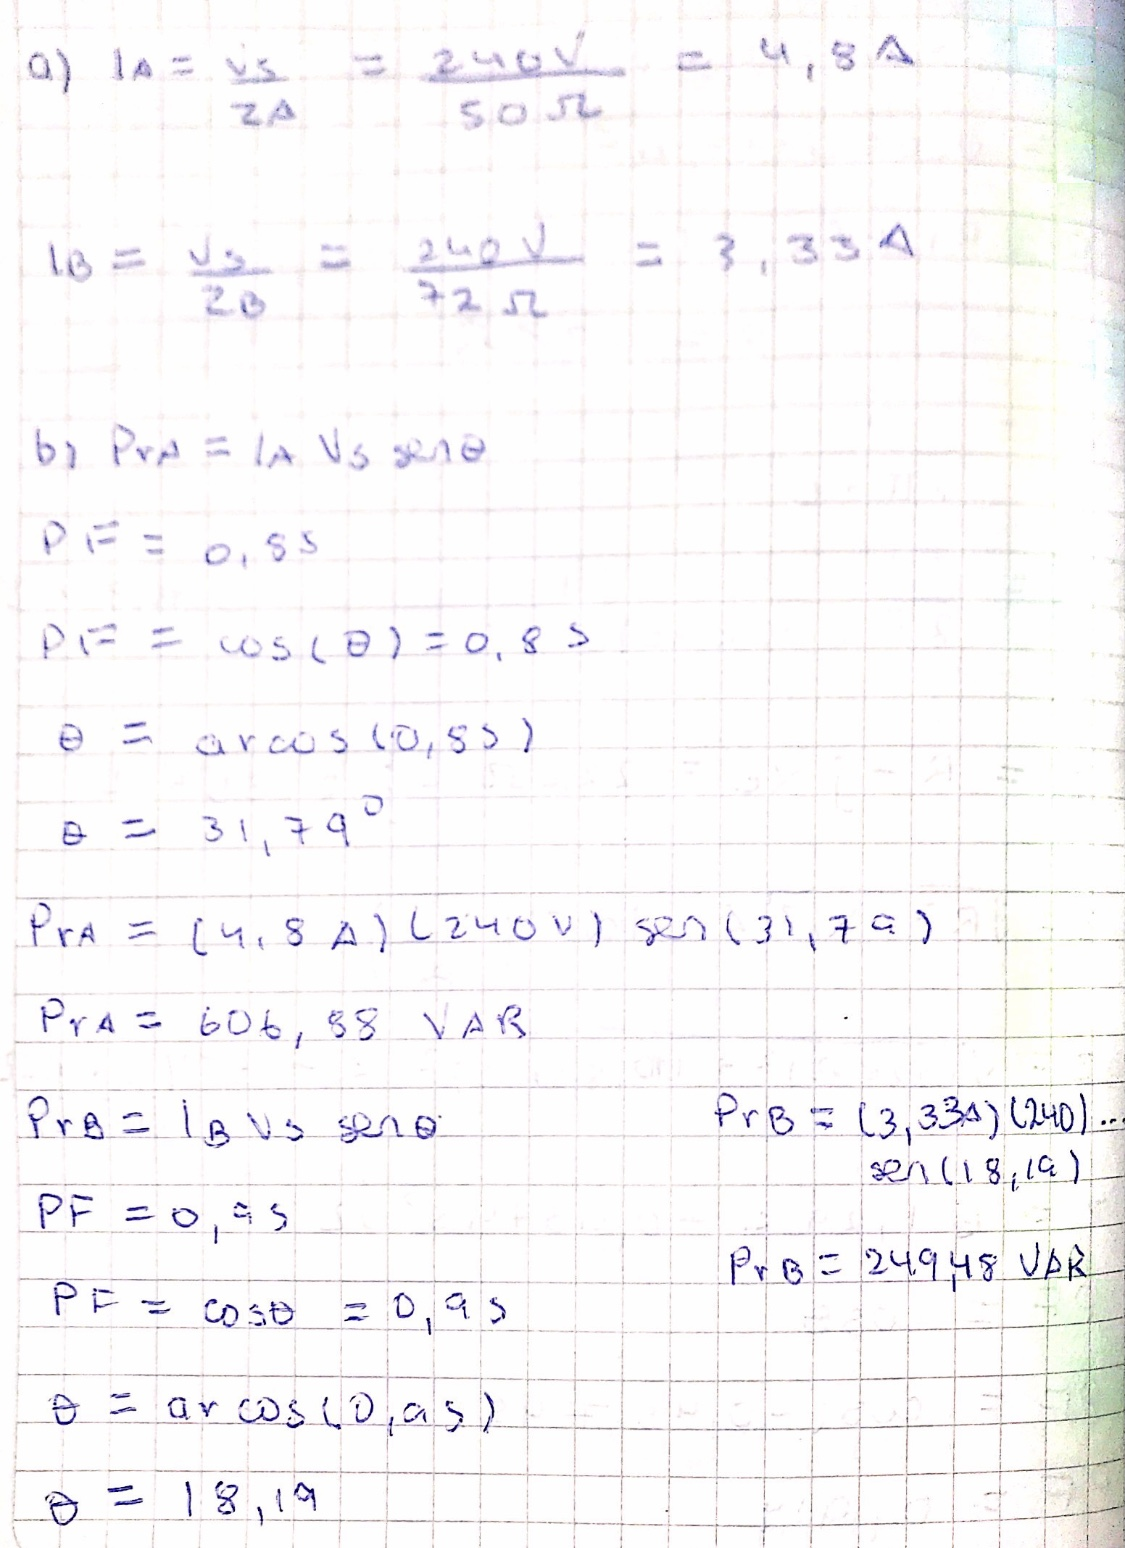 a) IA = Vs/ZA = 240V/50Ω = 4,8 A
IB = Vs/ZB = 240V/72Ω = 3,33 A
b) PrA = IA Vs senθ
PF = 0,85
PF = cos(θ) = 0,85
θ = arcos(0,85)
θ = 31,79°
PrA = (4,8 A) (240V) sen (31,79)
PrA = 606,88 VAR
PrB = IB Vs senθ
PF = 0,95
PF = cosθ = 0,95
θ = arcos(0,95)
θ = 18,19
PrB = (3,33A) (240) ...
sen(18,19)
PrB = 249,48 VAR